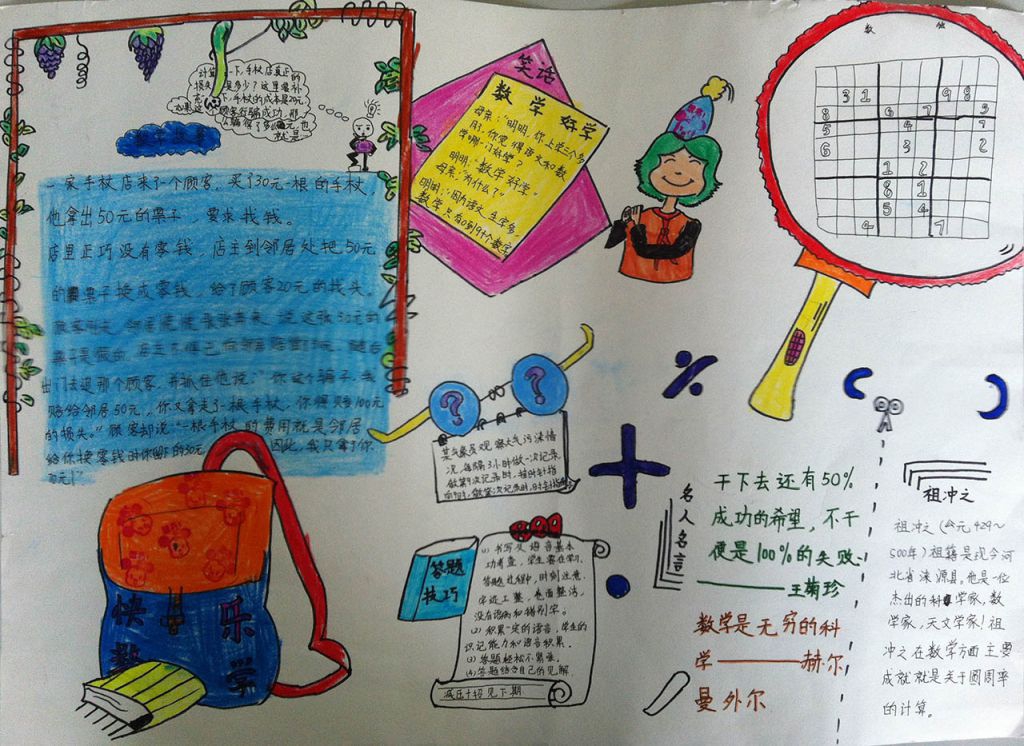 计算一下,手杖店真正的
损失是多少?这里要补
下,手杖的成本是20元
顾客行骗成功,那
一家手杖店来了一个顾客,买了30元一根的手杖,
他拿出50元的票子,要求找钱。
店里正巧没有零钱,店主到邻居处把50元
的票子换成零钱,给了顾客20元的找头。
出门去追那个顾客,并抓住他说:“你这个骗子,我
赔给邻居50元,你又拿走了一根手杖,你得赔100元
的损失。”顾客却说:“一根手杖的费用就是邻居
给你换零钱时你留下的30元,因此,我只拿了你
笑话
数学好学
母亲:“明明,你上学三个多
月,你觉得语文和数
学哪一门好学?”
明明:“数学好学。”
母亲:“为什么?”
明明:“因为语文生字多,
数学只有0到9十个数字。
数独
3 1 9 8
8 6 7 3
5 4 7
6 3 2
1 2
8 1
5 4
4 7
?
?
某气象员观察天气污染情
况,每隔3小时做一次记录
做第9次记录时,挂钟时针指
答题
技巧
(1)书写及语言基本
功考查,学生要在学习,
答题过程中,时刻注意,
字迹工整,卷面整洁,
没有语病和错别字。
(2)积累一定的语言,学生的
识记能力和语言积累。
(3)答题轻松不紧张。
(4)答题结合自己的见解
减压十招见下期
% + ÷
名人名言
干下去还有50%
成功的希望,不干
便是100%的失败。
——王菊珍
数学是无穷的科
学——赫尔
曼外尔
祖冲之
祖冲之(公元429~
500年)祖籍是现今河
北省涞源县,他是一位
杰出的科学家,数
学家,天文学家!祖
冲之在数学方面主要
成就就是关于圆周率
的计算。
快乐
数学